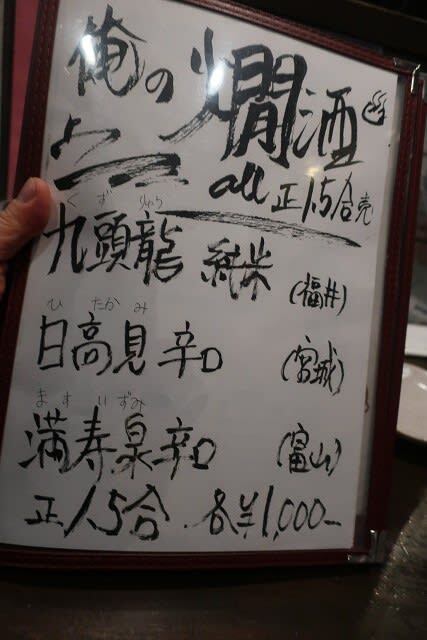 俺の燗酒
all 正1.5合売
くずりゅう
九頭龍 純米 (福井)
ひたかみ
日高見 辛口 (宮城)
ますいずみ
満寿泉 辛口 (富山)
正1.5合 各¥1,000-